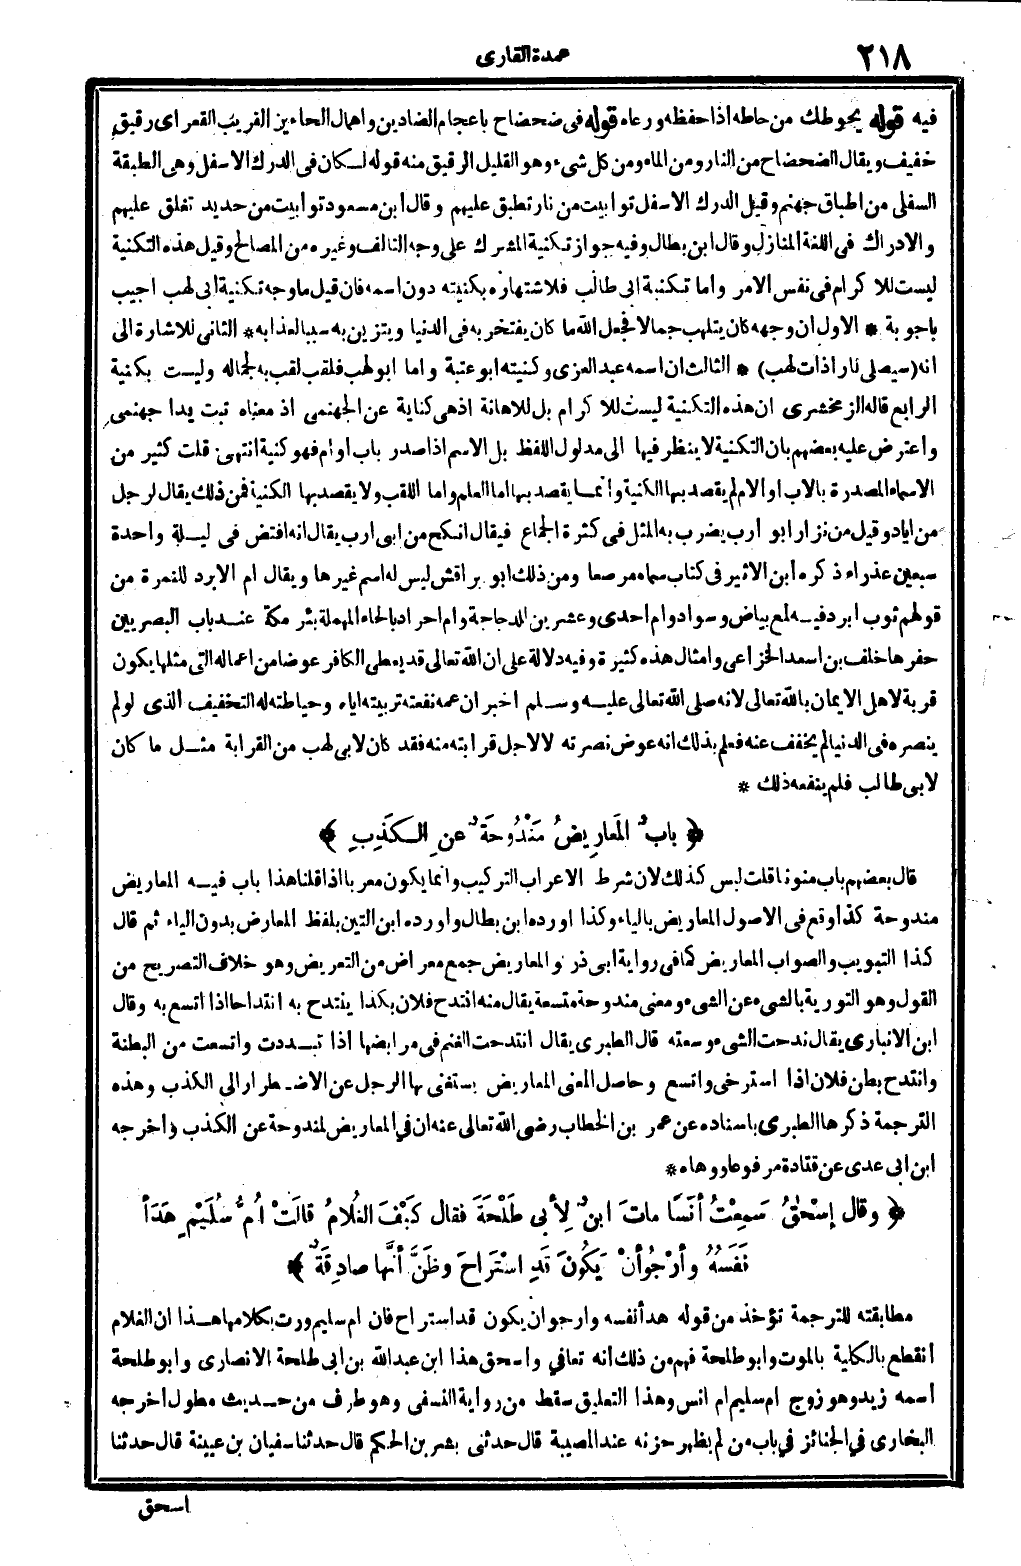 ٢١٨
عمدة القارى
فيه قوله يحوطك من حاطه اذا حفظه ورعاه قوله فى ضحضاح باعجام الضادين واهمال الحاءين القريب القعر اى رقيق
خفيف ويقال الضحضاح من النار ومن الماء ومن كل شىء وهو القليل الرقيق منه قوله لكان فى الدرك الاسفل وهى الطبقة
السفلى من اطباق جهنم وقيل الدرك الاسفل توابيت من نار تطبق عليهم وقال ابن مسعود توابيت من حديد تغلق عليهم
والادراك فى اللغة المنازل وقال ابن بطال وفيه جواز تكنية المشرك على وجه التالف وغيره من المصالح وقيل هذه التكنية
ليست للاكرام فى نفس الامر واما تكنية ابى طالب فلاشتهاره بكنيته دون اسمه فان قيل ما وجه تكنية ابى لهب اجيب
باجوبة * الاول ان وجهه كان يتلهب جمالا فجعل الله ما كان يفتخر به فى الدنيا ويتزين به سببا لعذابه * الثانى للاشارة الى
انه (سيصلى نارا ذات لهب) * الثالث ان اسمه عبد العزى وكنيته ابو عتبة واما ابو لهب فلقب لقب به لجماله وليست بكنية
الرابع قاله الزمخشرى ان هذه التكنية ليست للاكرام بل للاهانة اذ هى كناية عن الجهنمى اذ معناه تبت يدا جهنمى
واعترض عليه بعضهم بان التكنية لا ينظر فيها الى مدلول اللفظ بل الاسم اذا صدر باب او ام فهو كنية انتهى قلت كثير من
الاسماء المصدرة بالاب او الام لم يقصد بها الكنية وانما يقصد بها اما العلم واما اللقب ولا يقصد بها الكنية فمن ذلك يقال لرجل
من اياد وقيل من نزار ابو أرب يضرب به المثل فى كثرة الجماع فيقال انكح من ابى ارب يقال انه افتض فى ليلة واحدة
سبعين عذراء ذكره ابن الاثير فى كتاب سماه مرصعا ومن ذلك ابو براقش ليس له اسم غيرها ويقال ام الابرد للنمرة من
قولهم ثوب ابرد فيه لمع بياض وسواد وام احدى وعشرين الدجاجة وام احراد بالحاء المهملة بئر مكة عند باب البصريين
حفرها خلف بن اسعد الخزاعى وامثال هذه كثيرة وفيه دلالة على ان الله تعالى قد يعطى الكافر عوضا من اعماله التى مثلها يكون
قربة لاهل الايمان بالله تعالى لانه صلى الله تعالى عليه وسلم اخبر ان عمه نفعته تربيته اياه وحياطته له التخفيف الذى لو لم
ينصره فى الدنيا لم يخفف عنه فعلم بذلك انه عوض نصرته لا لاجل قرابته منه فقد كان لابى لهب من القرابة مثل ما كان
لابى طالب فلم ينفعه ذلك *
﴿ بابٌ المَعارِيضُ مَنْدُوحَةٌ عنِ الكَذِبِ ﴾
قال بعضهم باب منونا قلت ليس كذلك لان شرط الاعراب التركيب وانما يكون معربا اذا قلنا هذا باب فيه المعاريض
مندوحة كذا وقع فى الاصول المعاريض بالياء وكذا اورده ابن بطال واورده ابن التين بلفظ المعارض بدون الياء ثم قال
كذا التبويب والصواب المعاريض كما فى رواية ابى ذر والمعاريض جمع معراض من التعريض وهو خلاف التصريح من
القول وهو التورية بالشىء عن الشىء ومعنى مندوحة متسعة يقال منه انتدح فلان بكذا ينتدح به انتداحا اذا اتسع به وقال
ابن الانبارى يقال ندحت الشىء وسعته قال الطبرى يقال انتدحت الغنم فى مرابضها اذا تبددت واتسعت من البطنة
وانتدح بطن فلان اذا استرخى واتسع وحاصل المعنى المعاريض يستغنى بها الرجل عن الاضطرار الى الكذب وهذه
الترجمة ذكرها الطبرى باسناده عن عمر بن الخطاب رضى الله تعالى عنه ان فى المعاريض لمندوحة عن الكذب واخرجه
ابن ابى عدى عن قتادة مرفوعا ووهاه *
﴿ وقال إسْحٰقُ سَمِعْتُ أنَسًا ماتَ ابنٌ لِأبى طَلْحَةَ فقال كَيْفَ الغُلَامُ قالَتْ اُمُّ سُلَيْمٍ هَدَأَ
نَفَسُهُ وأرْجُو أنْ يَكُونَ قَدِ اسْتَراحَ وظَنَّ أنَّها صادِقَةٌ ﴾
مطابقته للترجمة تؤخذ من قوله هدأ نفسه وارجو ان يكون قد استراح فان ام سليم ورت بكلامها هذا ان الغلام
انقطع بالكلية بالموت وابو طلحة فهم من ذلك انه تعافى واسحق هذا ابن عبد الله بن ابى طلحة الانصارى وابو طلحة
اسمه زيد وهو زوج ام سليم ام انس وهذا التعليق سقط من رواية النسفى وهو طرف من حديث مطول أخرجه
البخارى فى الجنائز فى باب من لم يظهر حزنه عند المصيبة قال حدثنى بشر بن الحكم قال حدثنا سفيان بن عيينة قال حدثنا
اسحق